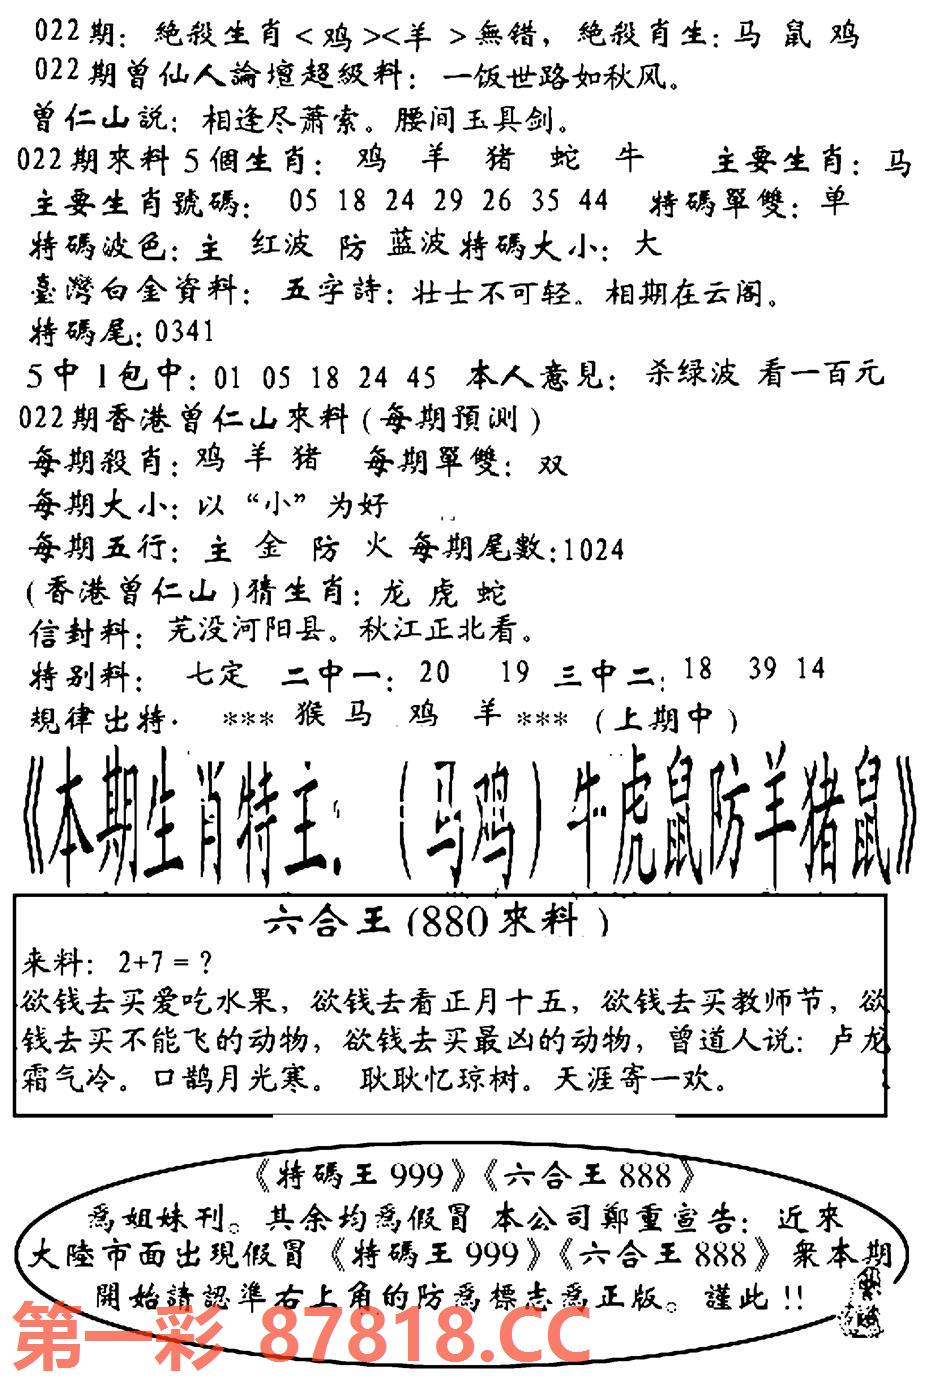 022期：絶殺生肖<鸡><羊>無错，絶殺肖生：马 鼠 鸡
022期曾仙人論壇超級料：一饭世路如秋风。
曾仁山説：相逢尽萧索。腰间玉具剑。
022期來料5個生肖：鸡 羊 猪 蛇 牛 主要生肖：马
主要生肖號碼：05 18 24 29 26 35 44 特碼單雙：单
特碼波色：主 红波 防 蓝波 特碼大小：大
臺灣白金資料：五字詩：壮士不可轻。相期在云阁。
特碼尾：0341
5中1包中：01 05 18 24 45 本人意見：杀绿波 看一百元
022期香港曾仁山來料（每期預測）
每期殺肖：鸡 羊 猪 每期單雙：双
每期大小：以“小”为好
每期五行：主 金 防 火 每期尾數：1024
(香港曾仁山)猜生肖：龙 虎 蛇
信封料：芜没河阳县。秋江正北看。
特别料：七定 二中一：20 19 三中二：18 39 14
規律出特· *** 猴 马 鸡 羊 *** （上期中）
《本期生肖特主：（马鸡）牛虎鼠防羊猪鼠》
六合王(880來料)
来料：2+7=？
欲钱去买爱吃水果，欲钱去看正月十五，欲钱去买教师节，欲
钱去买不能飞的动物，欲钱去买最凶的动物，曾道人说：卢龙
霜气冷。口鹊月光寒。 耿耿忆琼树。天涯寄一欢。
《特碼王999》《六合王888》
爲姐妹刊。其余均爲假冒 本公司鄭重宣告：近來
大陸市面出現假冒《特碼王999》《六合王888》衆本期
開始請認準右上角的防爲標志爲正版。謹此!!
第一彩 87818.CC